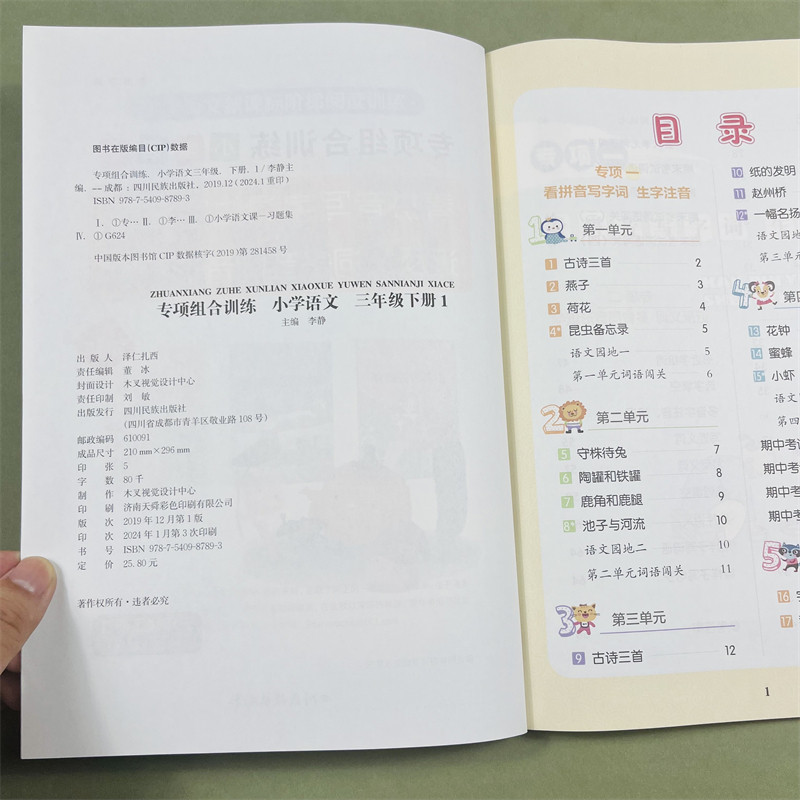 图书在版编目(CIP)数据
专项组合训练. 小学语文三年级. 下册. 1 / 李静主
编. -- 成都 : 四川民族出版社, 2019.12 (2024.1重印)
ISBN 978-7-5409-8789-3
Ⅰ. ①专… Ⅱ. ①李… Ⅲ. ①小学语文课－习题集
Ⅳ. ①G624
中国版本图书馆CIP数据核字(2019)第281458号
ZHUANXIANG ZUHE XUNLIAN XIAOXUE YUWEN SANNIANJI XIACE
专项组合训练 小学语文 三年级下册 1
主编 李静
出 版 人 泽仁扎西
责任编辑 董 冰
封面设计 木叉视觉设计中心
责任印制 刘 敏
出版发行 四川民族出版社
(四川省成都市青羊区敬业路108号)
邮政编码 610091
成品尺寸 210 mm×296 mm
印 张 5
字 数 80千
制 作 木叉视觉设计中心
印 刷 济南天舜彩色印刷有限公司
版 次 2019年12月第1版
印 次 2024年1月第3次印刷
书 号 ISBN 978-7-5409-8789-3
定 价 25.80元
著作权所有·违者必究
目 录
专项一
看拼音写字词 生字注音
1 第一单元
1 古诗三首 2
2 燕子 3
3 荷花 4
4* 昆虫备忘录 5
语文园地一 5
第一单元词语闯关 6
2 第二单元
5 守株待兔 7
6 陶罐和铁罐 8
7 鹿角和鹿腿 9
8* 池子与河流 10
语文园地二 10
第二单元词语闯关 11
3 第三单元
9 古诗三首 12
10 纸的发明
11 赵州桥
12* 一幅名扬
语文园地
第三单元
4 第四
13 花钟
14 蜜蜂
15* 小虾
语文园
第四
期中考
期中考
期中考
期中考
5
16
17
1